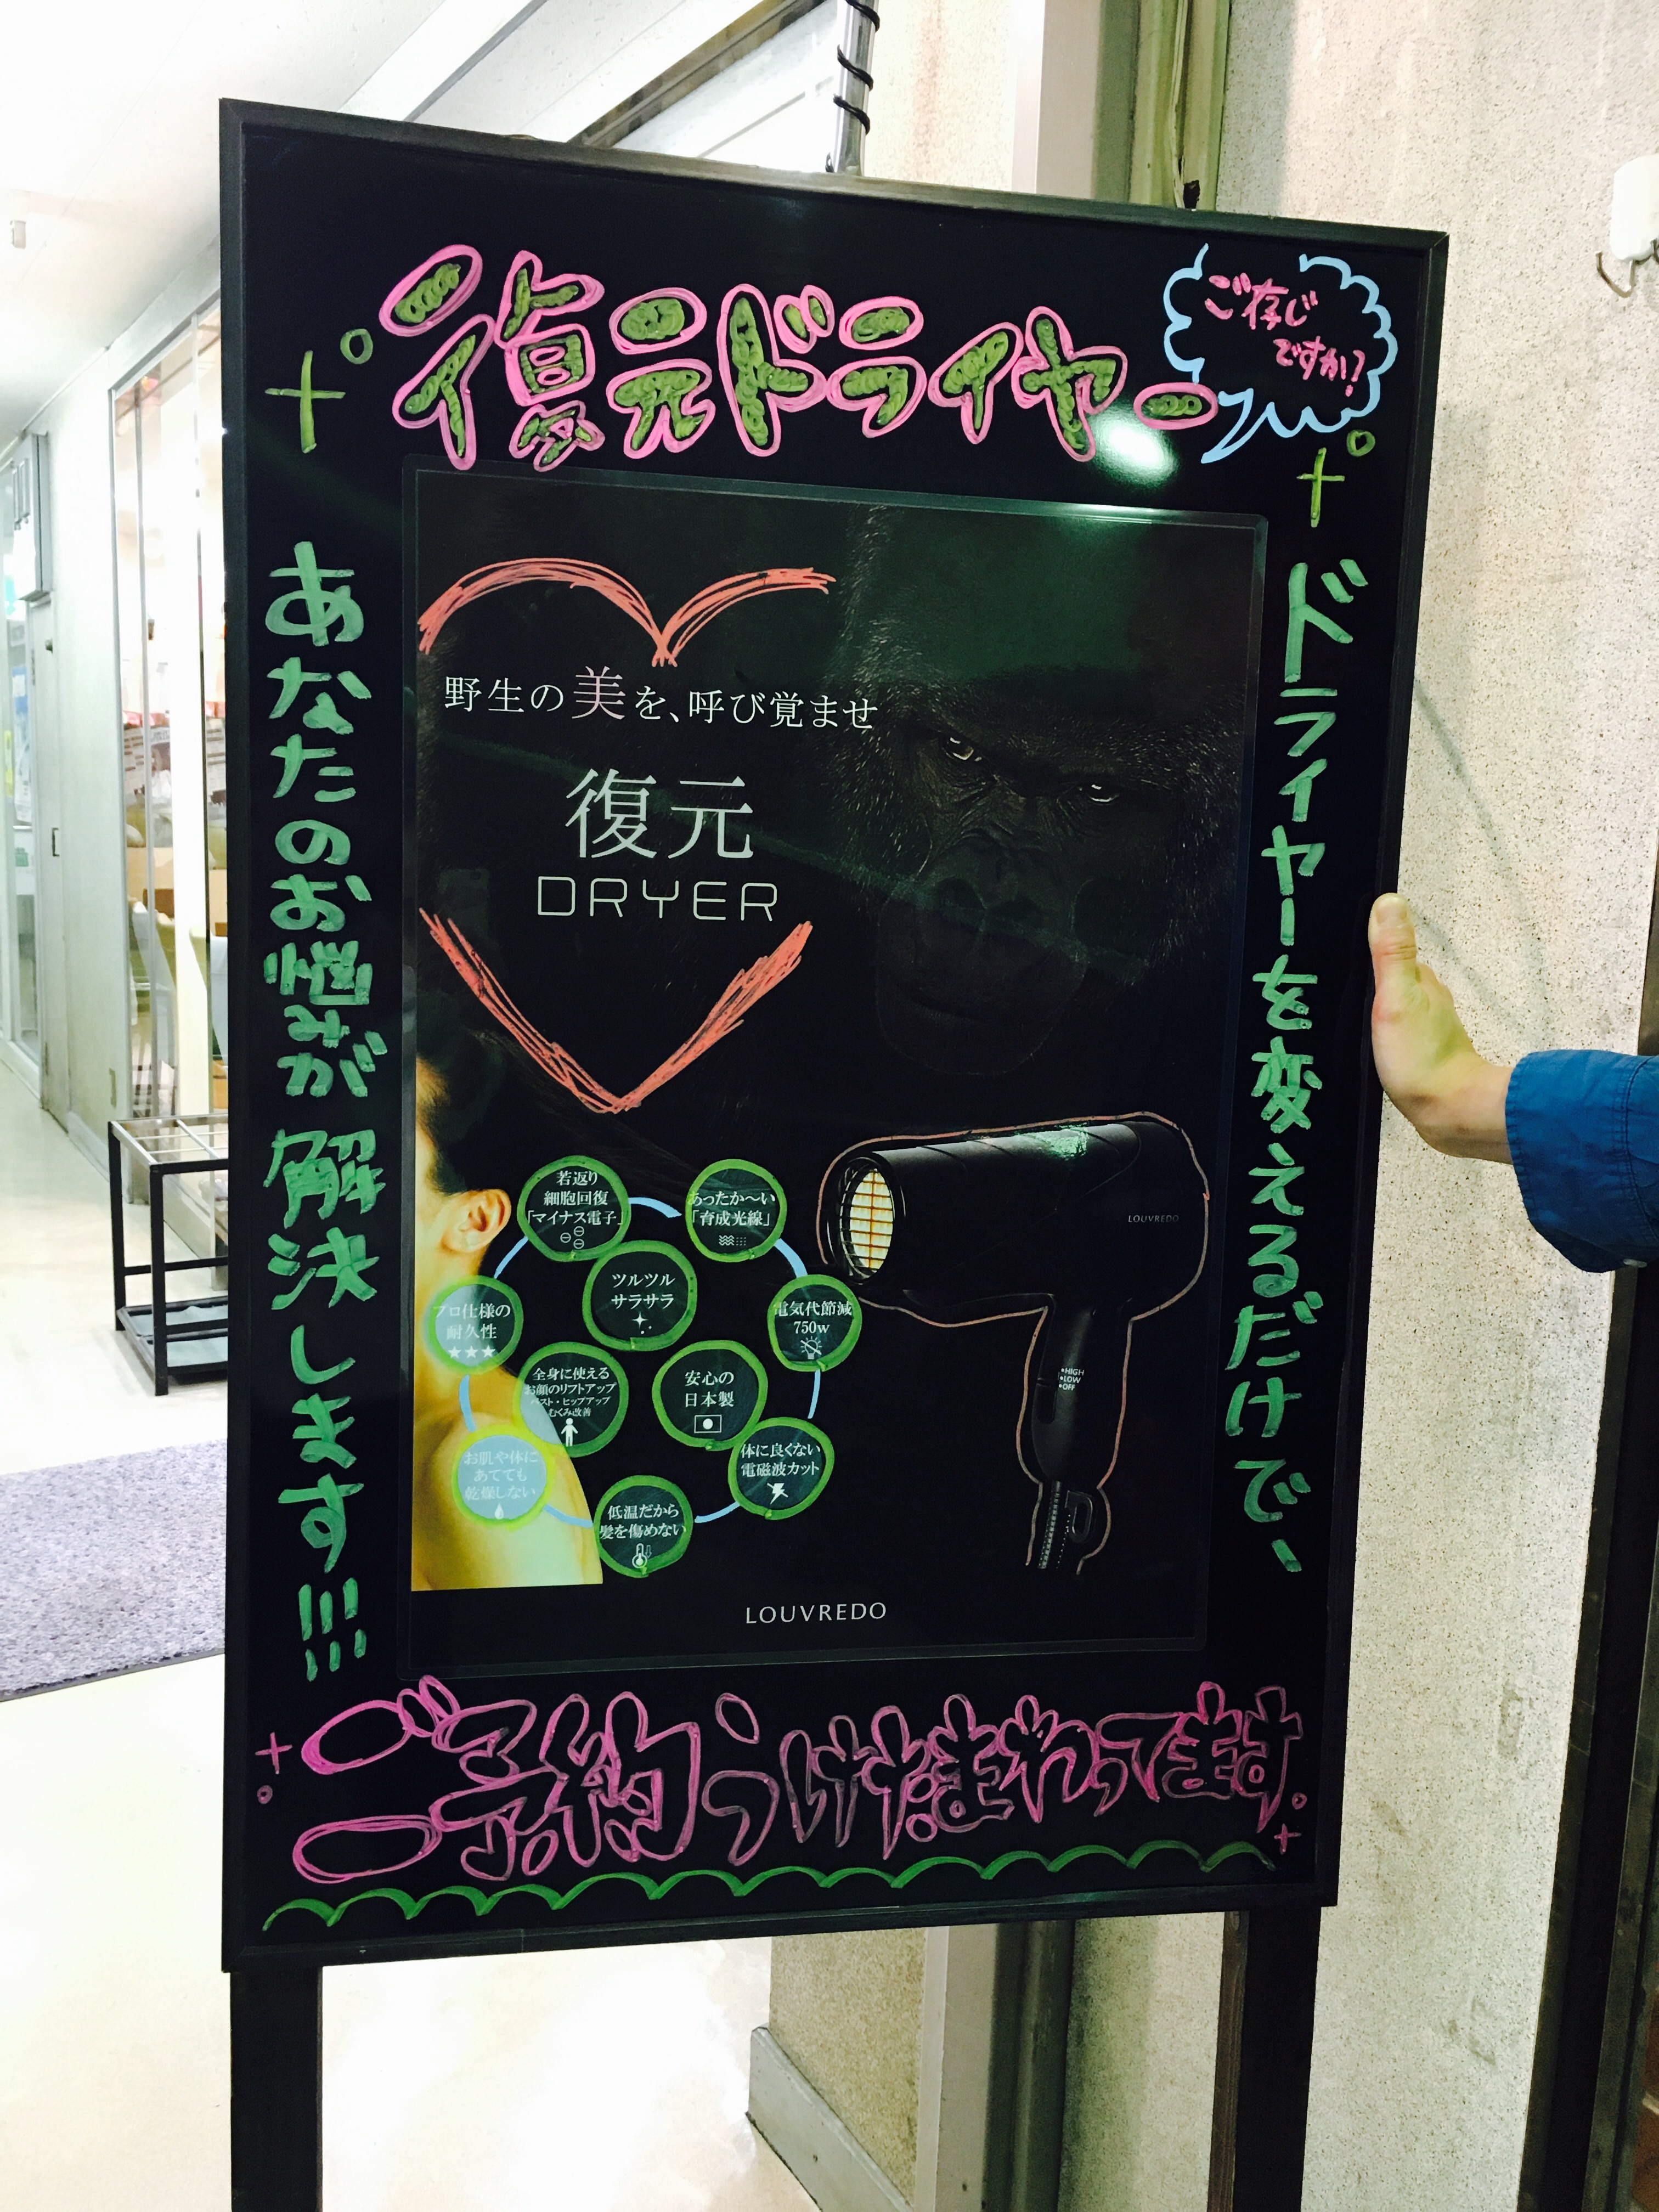 復元ドライヤー
ご存じ
ですか?
ドライヤーを変えるだけで、
あなたのお悩みが解決します!!!
野生の美を、呼び覚ませ
復元
DRYER
LOUVREDO
HIGH
LOW
OFF
若返り
細胞回復
「マイナス電子」
あったか〜い
「育成光線」
ツルツル
サラサラ
プロ仕様の
耐久性
★★★
電気代節減
750w
全身に使える
お顔のリフトアップ
バスト・ヒップアップ
むくみ改善
安心の
日本製
お肌や体に
あてても
乾燥しない
体に良くない
電磁波カット
低温だから
髪を傷めない
LOUVREDO
ご予約うけたまわってます。